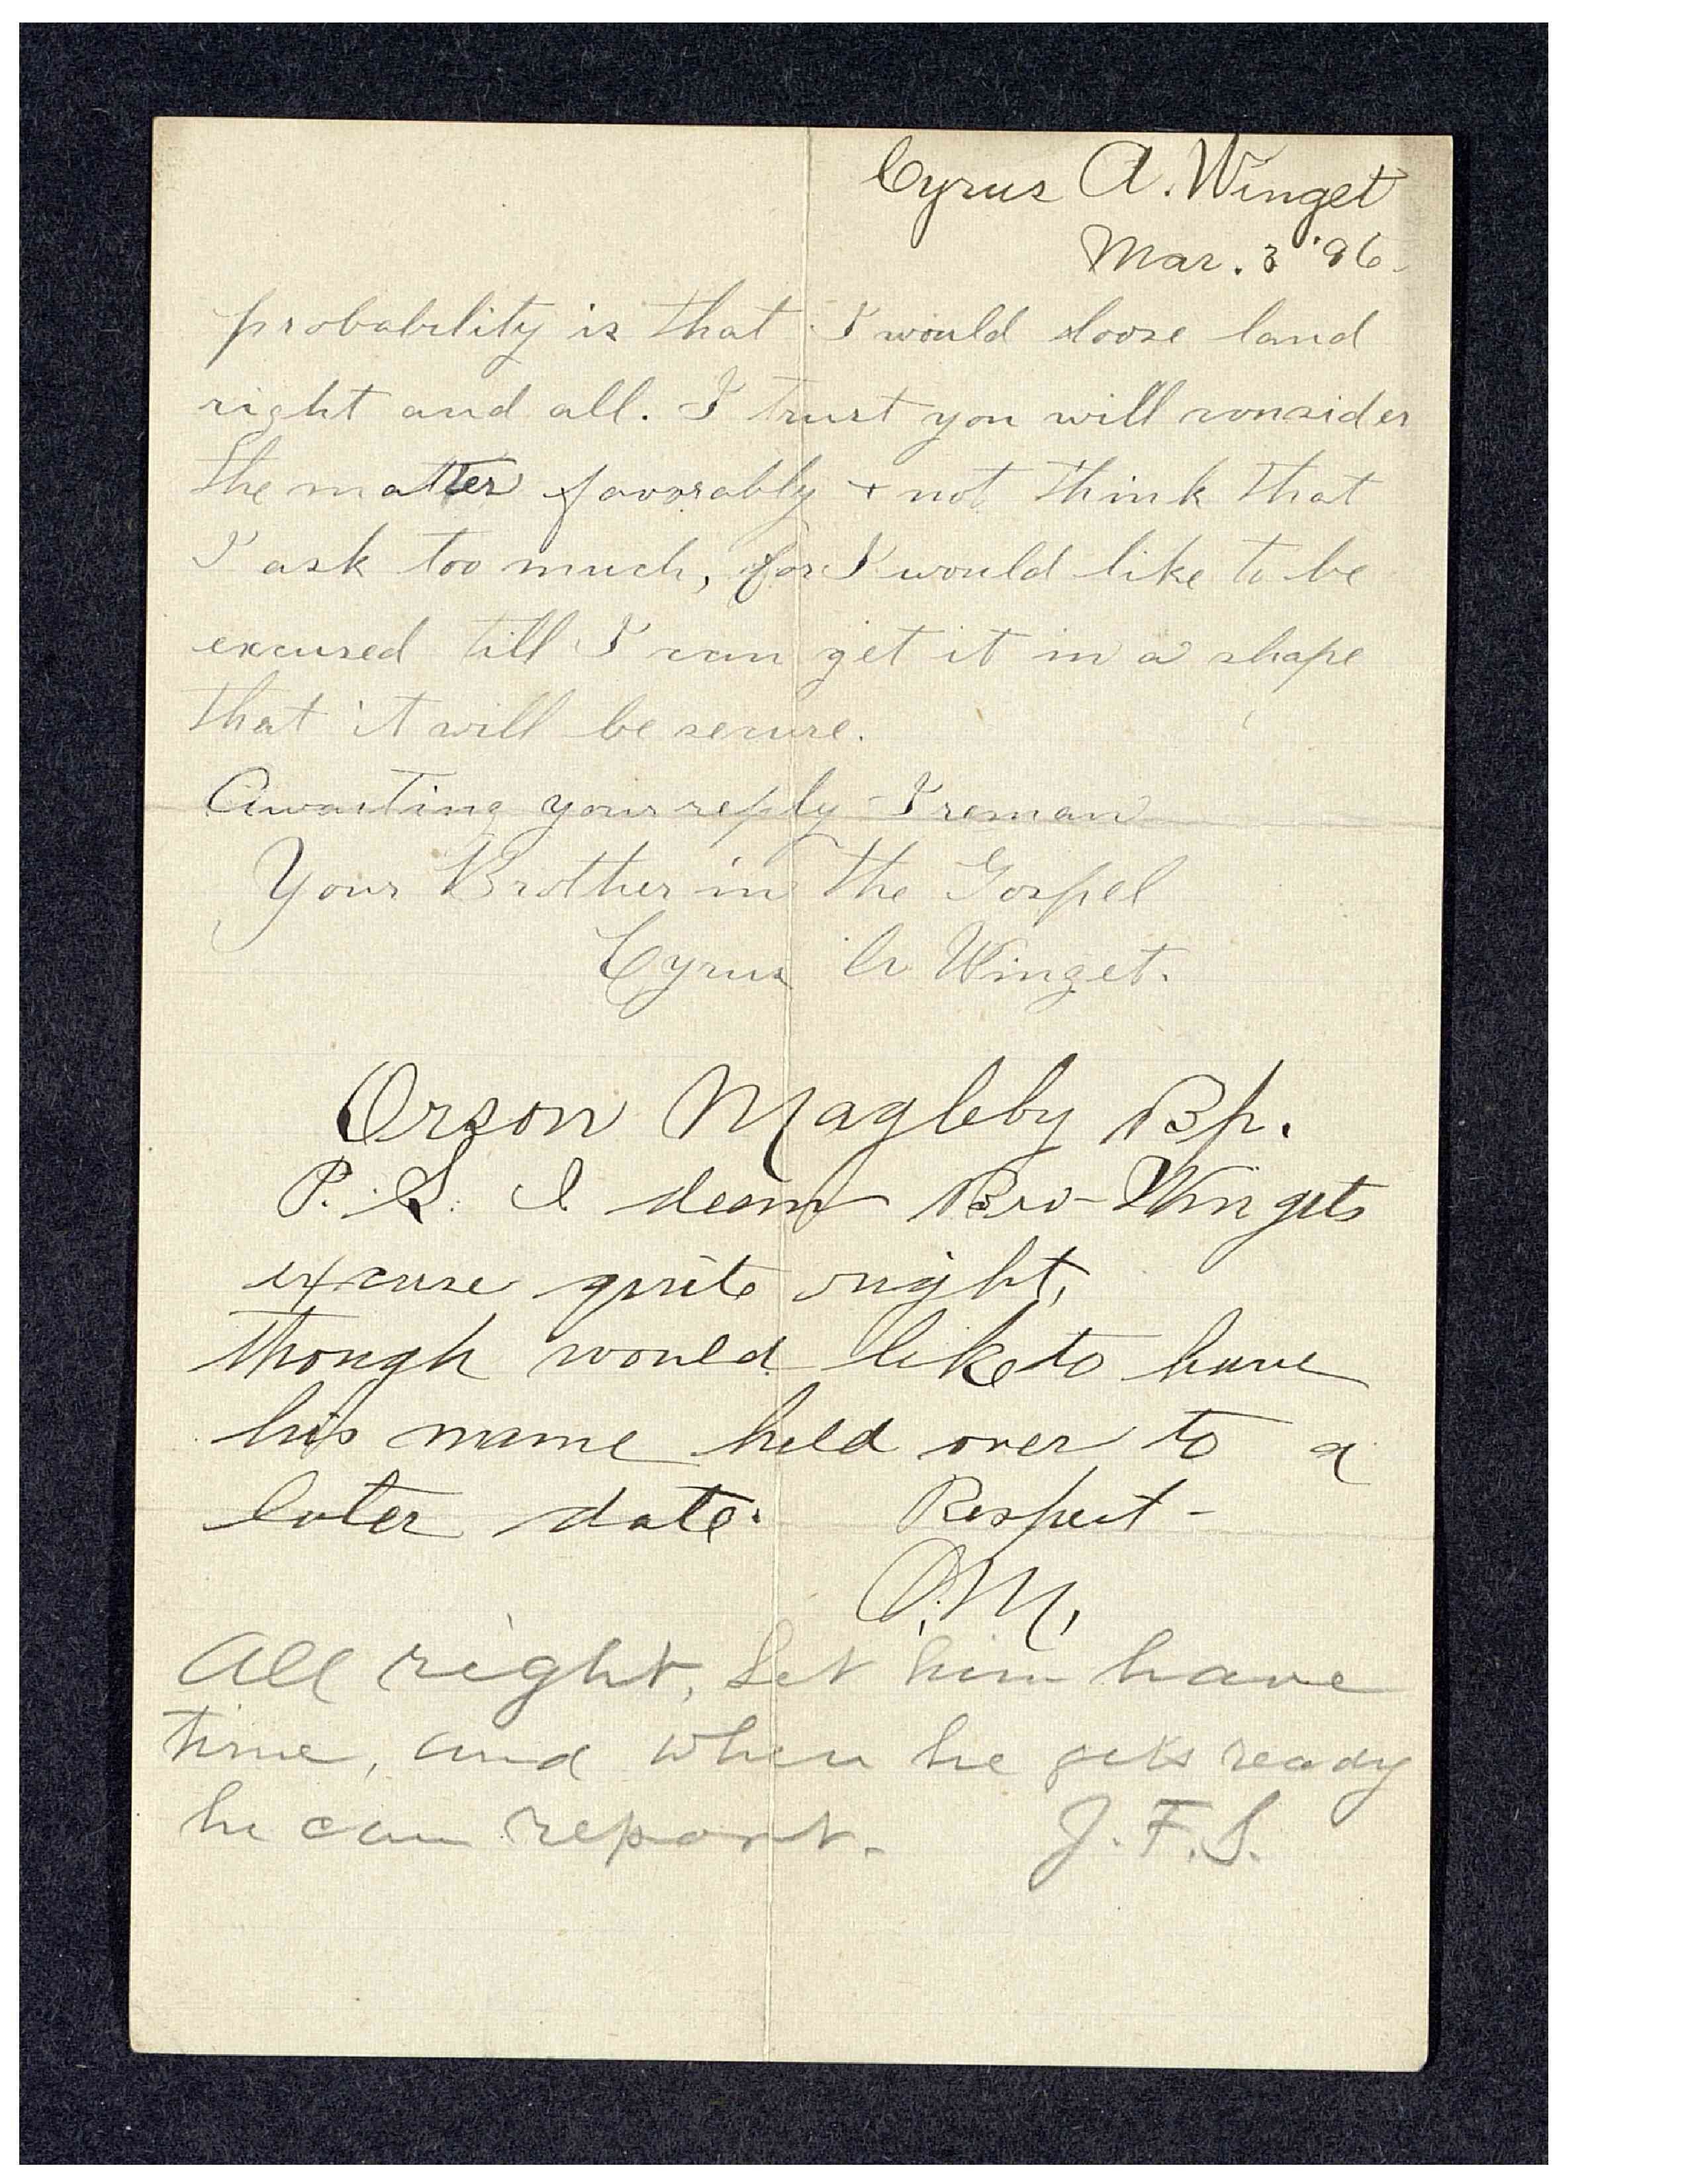 Cyrus A. Winget
Mar. 3 '96.
probability is that I would loose land
right and all. I trust you will consider
the matter favorably + not think that
I ask too much, for I would like to be
excused till I can get it in a shape
that it will be secure.
Awaiting your reply I reman
Your Brother in the Gospel
Cyrus A Winget.
Orson Magleby Bp.
P.S. I deem Bro Wingets
excuse quite right,
though would like to have
his name held over to a
later date. Respect-
O.M.
All right, Let him have
time, and when he gets ready
he can report. J.F.S.